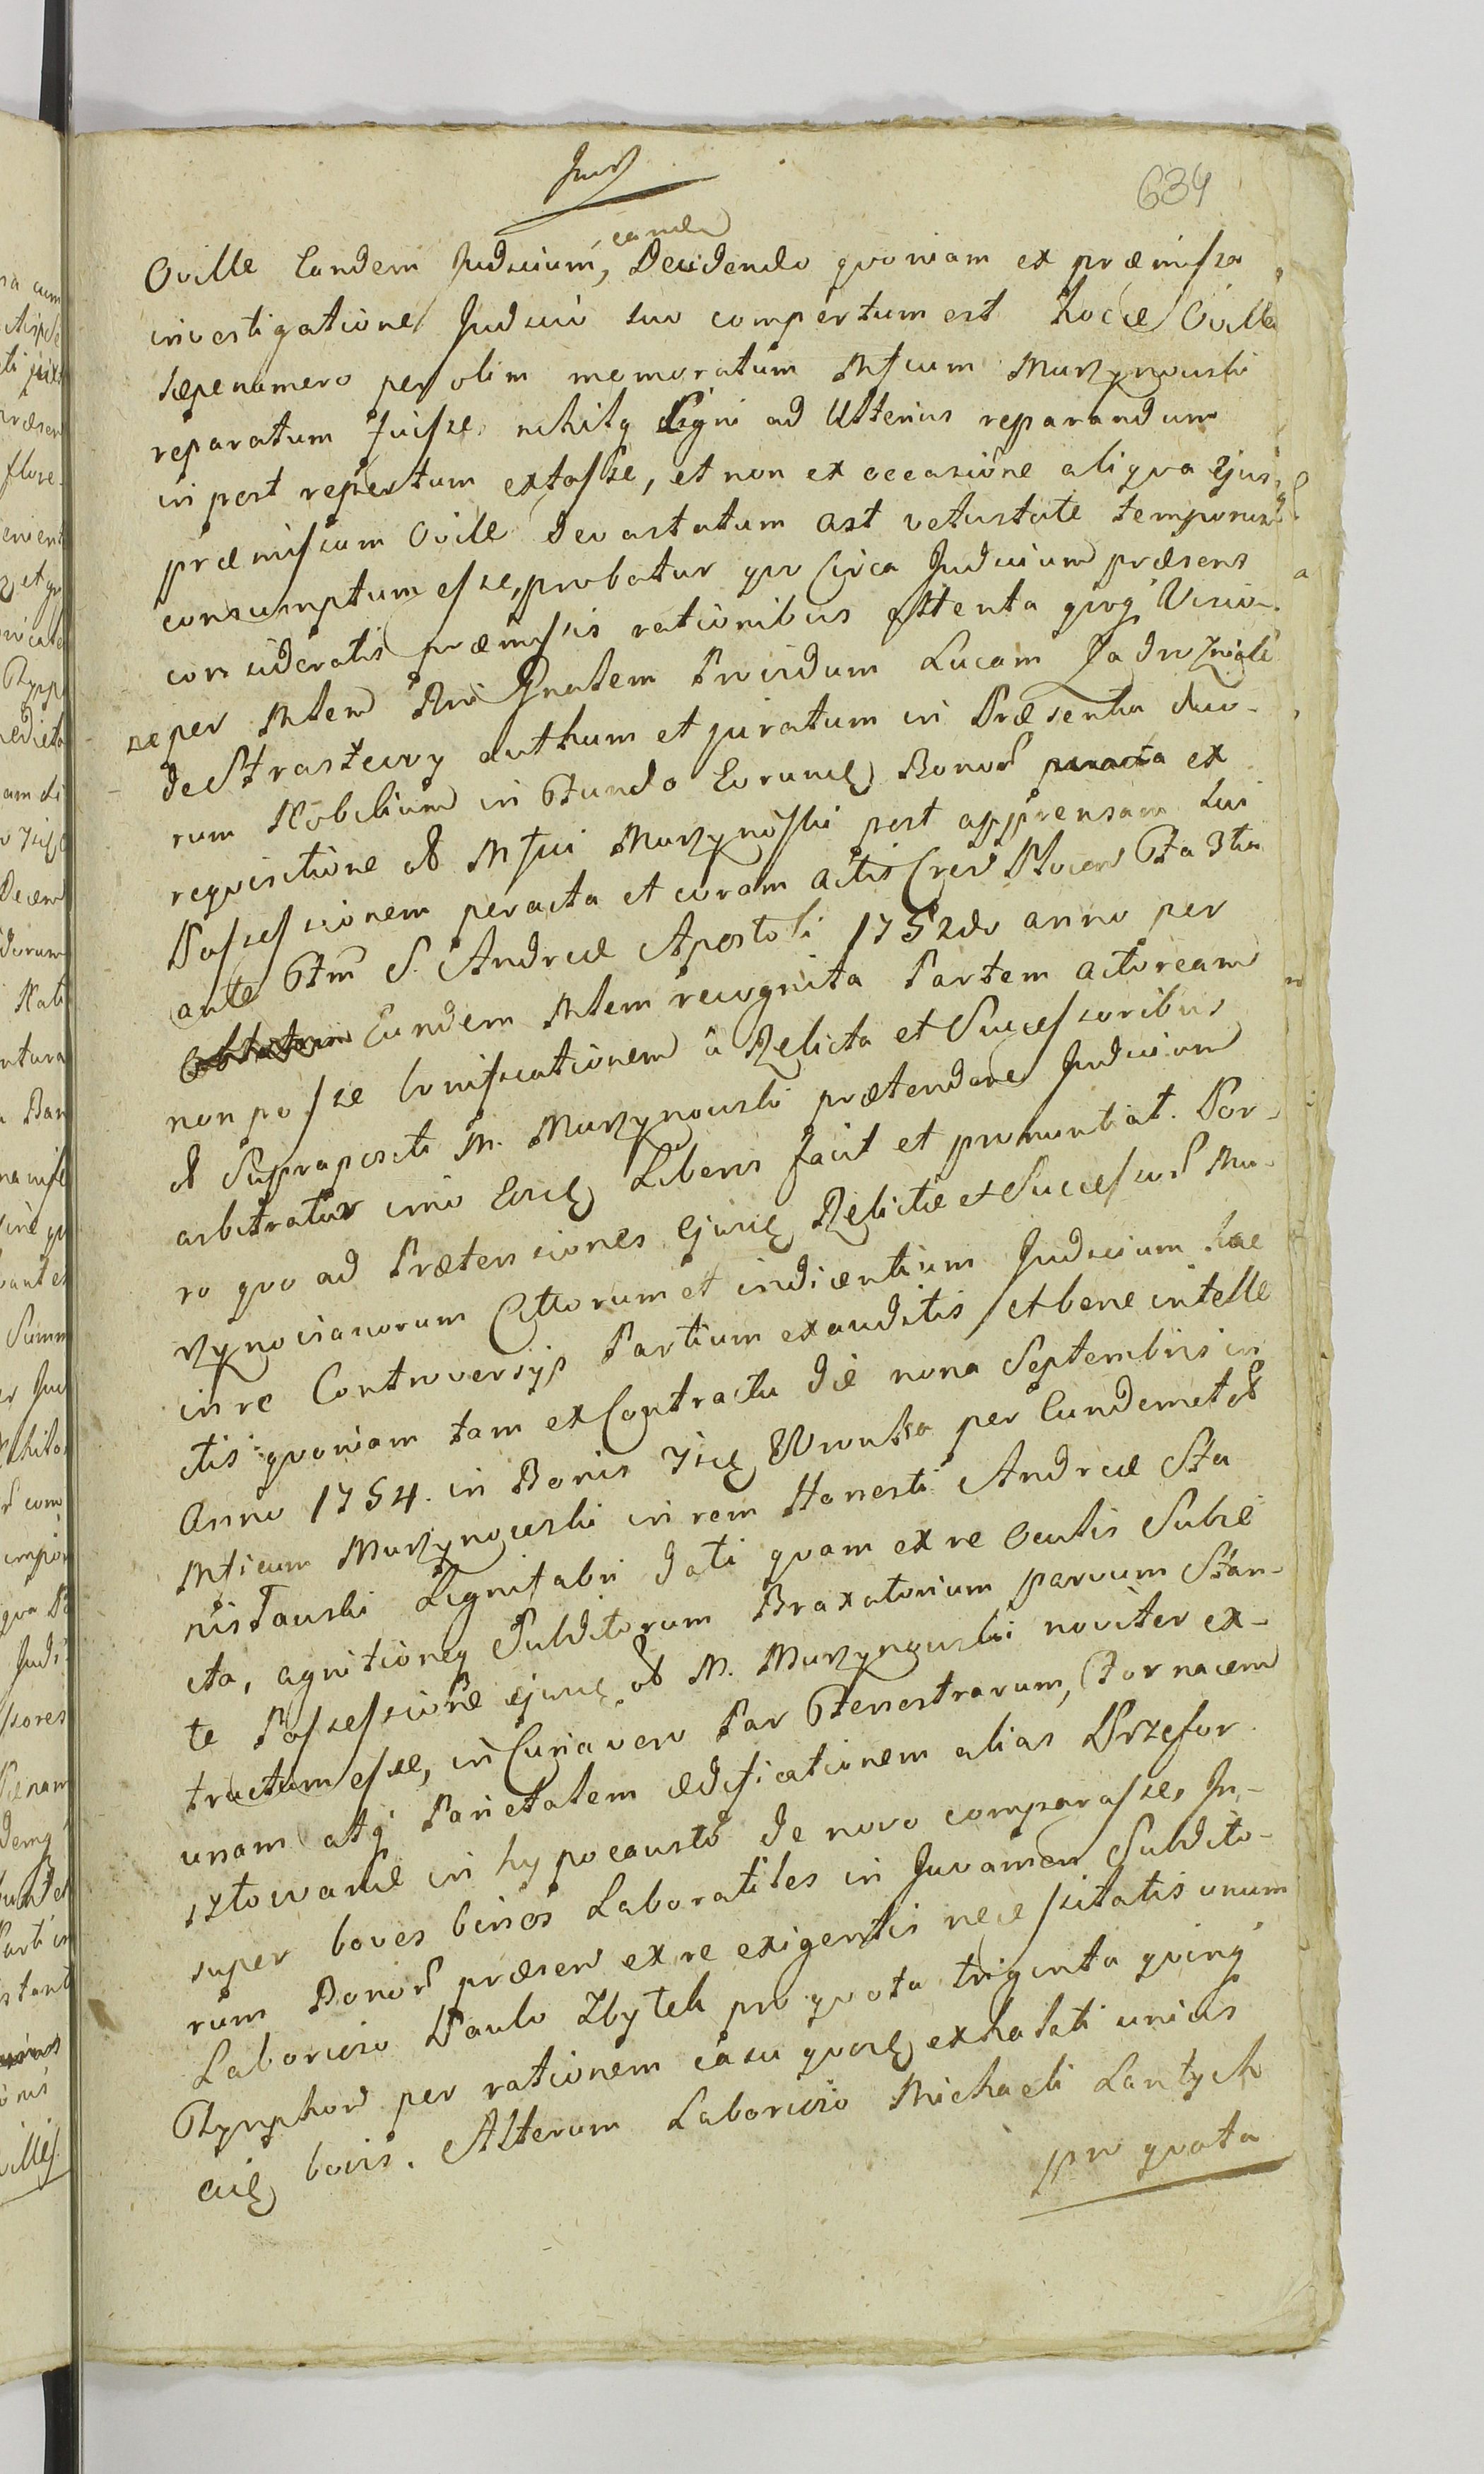 634
Oville Eandem Judicium, Decidendo quoniam ex præmissa
eande
investigatione Judicio suo compertum est hocce Oville
sæpenumero per olim memoratum Mfcum Murzynowski
reparatum fuisse, nihilq Ligni ad Ulterius reparandum
in post repertum extasse, et non ex occasione aliqua Ejus
præmissum Ovile devastatum ast vetustate temporis
consumptum esse, probatur pro Circa Judicium præsens
consideratis præmissis rationibus attenta quoq Visio-
ne per Mtem Rni Gnalem Providum Lucam
de Strasţewy authum et juratum in Præsentia duo-
rum Nobilium in Fundo Eorumd Bonor peracta ex
requisitione ol Mfui Murzynofski post apprensam sui
Possessionem peracta et coram actis
ante Ftm S. Andreæ Apostoli 1752do anno per
Eundem Mtem recognita Partem actoream
non posse bonificationem à Relicta et Successoribus
ol Suprapositi M. Murzynowski prætendere Judicium
arbitratur imo Eosd Liberos facit et pronuntiat. Por-
ro quo ad Prætensiones ejusd Relictæ et Successor Mu-
rzynovianorum Cittorum et indicentium Judicium hac
in re Controversijs Partium exauditis et bene intelle
ctis quoniam tam ex Contractu die nona Septembris in
Anno 1754. in Bonis Wronska per Eundemet ol
Mficum Murzynowski in rem Honesti Andreæ Sta
nisławski Lignifabri dati quam ex re oculis Subie
cta, agnitioneq Subditorum Braxatorium parvum Stan-
te Possessione ejusd ol M. Murzynowski noviter ex-
tructum esse, in Curia vero Par Fenestrarum, Fornacem
unam atq Parietalem ædificationem alias Przefor
sztowanie in hypocausto de novo comparasse, In-
super boves binos Laboratiles in Juvamen Subdito-
rum Bonor præsen ex re exigentis necessitatis unum
Laborioso Paulo Zbytek pro quota triginta quinq
Tynphon per rationem casu quod exhalati unius
bovis. Alterum Laborioso Michaeli Lantych
pro quota